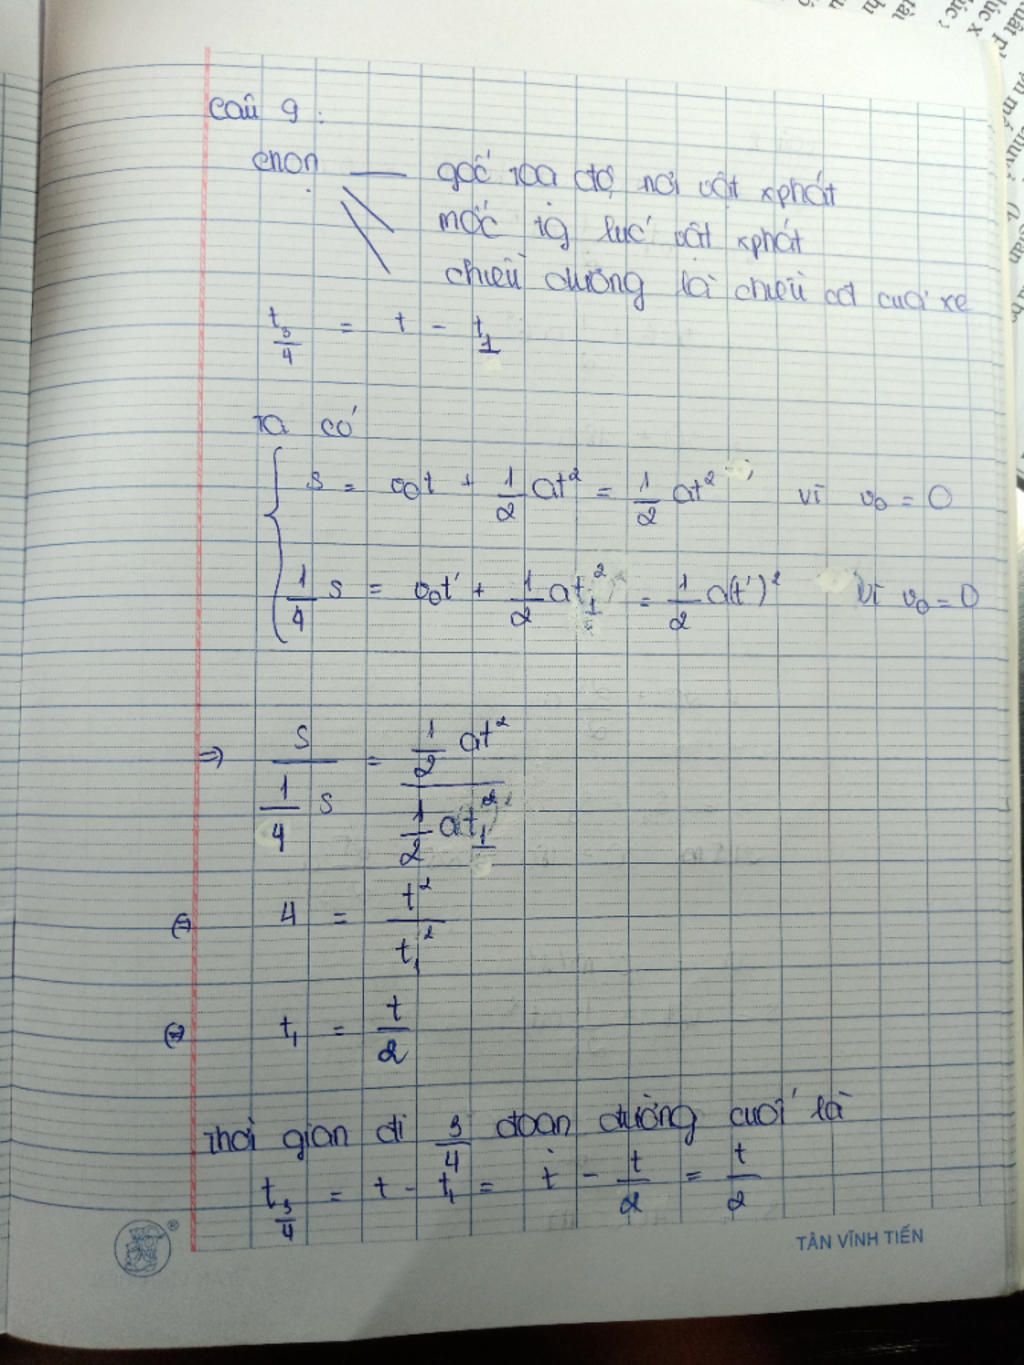 Câu 9 :
chọn — gốc tọa độ nơi vật xphát
mốc tg lúc vật xphát
chiều dương là chiều cđ cuả xe
t_{3/4} = t - t_1
Ta có
s = v_0t + 1/2 at² = 1/2 at² , vì v_0 = 0
1/4 s = v_0t' + 1/2 at_1² = 1/2 a(t')² Vì v_0 = 0
⇒ s / (1/4 s) = (1/2 at²) / (1/2 at_1²)
⇔ 4 = t² / t_1²
⇔ t_1 = t/2
Thời gian đi 3/4 đoạn đường cuối là
t_{3/4} = t - t_1 = t - t/2 = t/2
®
TÂN VĨNH TIẾN